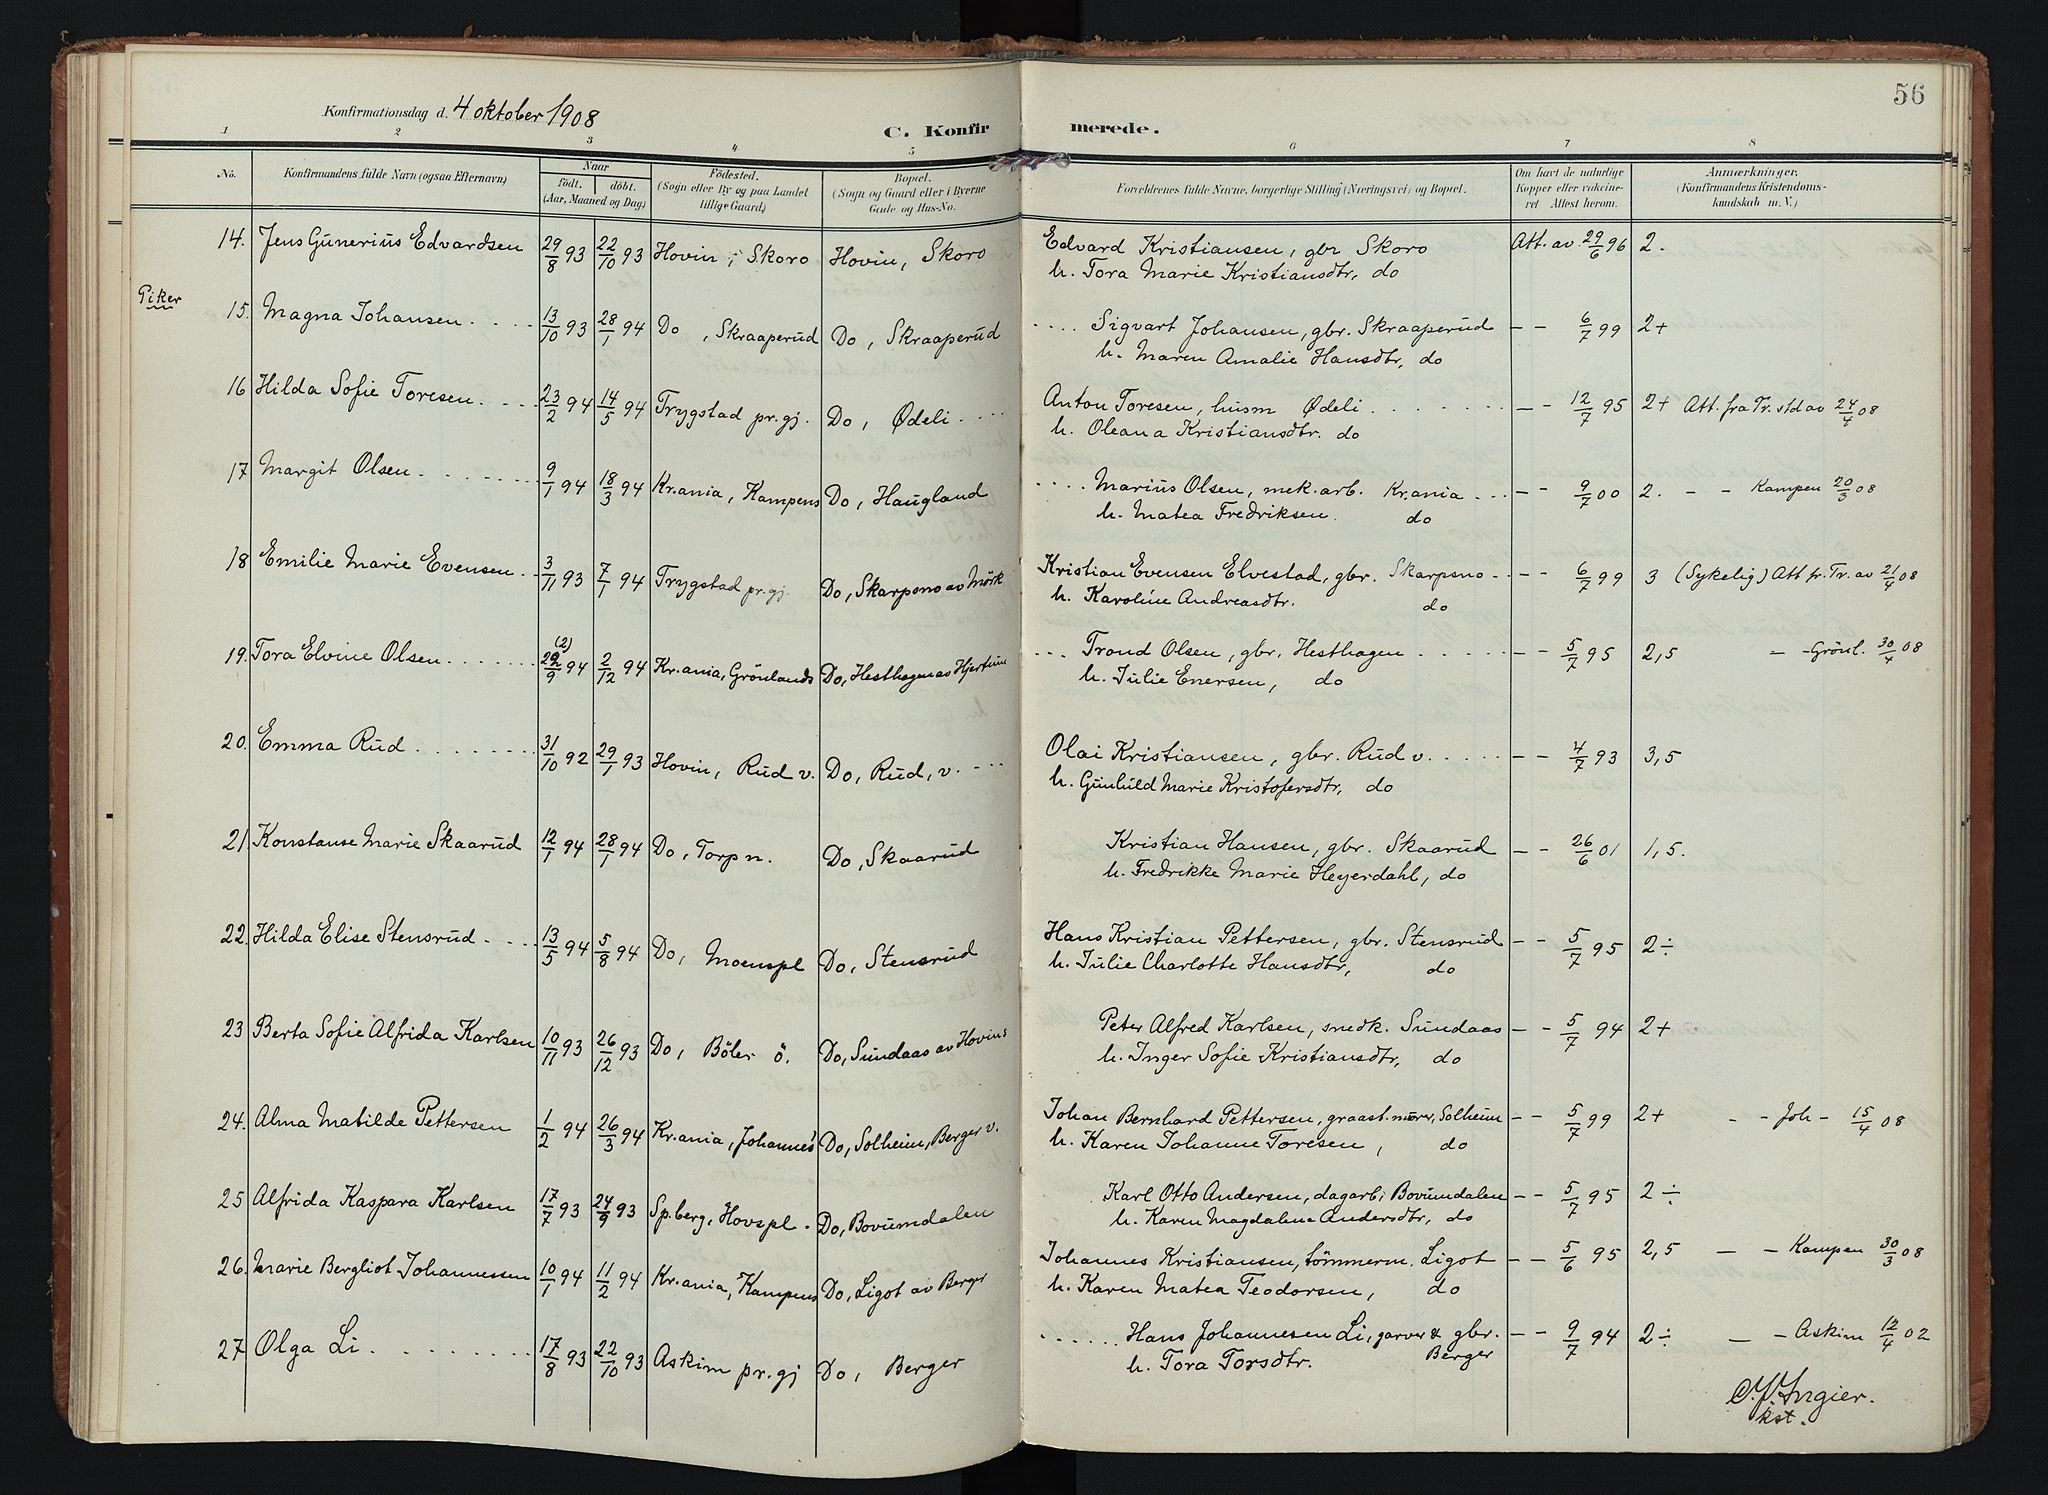 56
Konfirmationsdag d. 4 oktober 1908
C. Konfirmerede.
1 2 3 4 5 6 7 8
No. Konfirmandens fulde Navn (ogsaa Efternavn) Naar født. døbt. (Aar, Maaned og Dag) Fødested. (Sogn eller By og paa Landet tillige Gaard) Bopæl. (Sogn og Gaard eller i Byerne Gade og Hus-No. Forældrenes fulde Navne, borgerlige Stilling (Næringsvei) og Bopæl. Om havt de naturlige Kopper eller vaccineret Attest herom. Anmærkninger. (Konfirmandens Kristendomskundskab m. V.)
14. Jens Gunerius Edvardsen 29/8 93 22/10 93 Hovin, Skoro Hovin, Skoro Edvard Kristiansen, gbr Skoro Att. av. 29/6 96 2.
h. Tora Marie Kristiansdtr, do
Piker
15. Magna Johansen 13/10 93 28/1 94 Do, Skraaperud Do, Skraaperud Sigvart Johansen, gbr. Skraaperud - - 6/7 99 2+
h. Maren Amalie Hansdtr, do
16 Hilda Sofie Toresen 23/2 94 14/5 94 Trygstad pr.gj. Do, Ødeli Anton Toresen, husm Ødeli - - 12/7 95 2+ Att. fra Tr.std av 24/4 08
h. Oleana Kristiansdtr. do
17 Margit Olsen 9/1 94 18/3 94 Kr.ania, Kampens Do, Haugland Marius Olsen, mek.arb. Kr.ania - - 9/7 00 2. - - Kampen 20/3 08
h. Matea Fredriksen. do
18 Emilie Marie Evensen 3/11 93 7/1 94 Trygstad pr.gj. Do, Skarpsno av Mörk Kristian Evensen Elvestad, gbr. Skarpsno - - 6/7 99 3 (Sykelig) Att fr. Tr. av 21/4 08
h. Karoline Andreasdtr. do
19. Tora Elvine Olsen (2) 22/9 94 2/12 94 Kr.ania, Grönlands Do, Hesthagen av Hjertum Trond Olsen, gbr, Hesthagen - - 5/7 95 2,5 - - Grönl. 30/4 08
h. Julie Enersen, do
20. Emma Rud 31/10 92 29/1 93 Hovin, Rud v. Do, Rud, v. Olai Kristiansen, gbr. Rud v. - - 4/7 93 3,5
h. Gunhild Marie Kristofersdtr, do
21 Konstanse Marie Skaarud 12/1 94 28/1 94 Do, Torp n. Do, Skaarud Kristian Hansen, gbr. Skaarud - - 26/6 01 1,5.
h. Fredrikke Marie Heyerdahl, do
22. Hilda Elise Stensrud 13/5 94 5/8 94 Do, Moenspl Do, Stensrud Hans Kristian Pettersen, gbr. Stensrud - - 5/7 95 2÷
h. Julie Charlotte Hansdtr, do
23 Berta Sofie Alfrida Karlsen 10/11 93 26/12 93 Do, Böler ö. Do, Sundaas av Hovins Peter Alfred Karlsen, snedk. Sundaas - - 5/7 94 2+
h. Inger Sofie Kristiansdtr, do
24. Alma Matilde Pettersen 1/2 94 26/3 94 Kr.ania, Johannes' Do, Solheim, Berger v. Johan Bernhard Pettersen, graast.murer, Solheim - - 5/7 99 2+ - - Joh - 15/4 08
h. Karen Johanne Toresen, do
25 Alfrida Kaspara Karlsen 17/7 93 24/9 93 Sp.berg, Hovspl. Do, Bovumdalen Karl Otto Andersen, dagarb, Bovumdalen - - 5/7 95 2÷
h. Karen Magdalene Andersdtr, do
26. Marie Bergliot Johannessen 10/1 94 11/2 94 Kr.ania, Kampens Do, Ligot av Berger Johannes Kristiansen, tömmerm. Ligot - - 5/6 95 2,5 - - Kampen 30/3 08
h. Karen Matea Teodorsen, do
27 Olga Li 17/8 93 22/10 93 Askim pr.gj Do, Berger Hans Johannesen Li, garver & gbr. Berger - - 9/7 94 2÷ - - Askim 12/4 02
h. Tora Torsdtr.
Ingier.
kst.